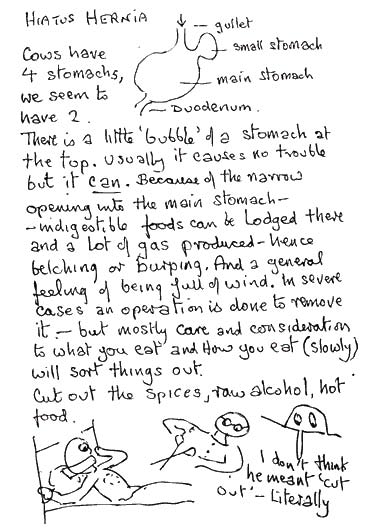 HIATUS HERNIA
gullet
small stomach
main stomach
DUODENUM.
COWS HAVE
4 stomachs,
we seem to
have 2.
There is a little 'bubble' of a stomach at
the top. Usually it causes no trouble
but it can. Because of the narrow
opening into the main stomach-
-indigestible foods can be lodged there
and a lot of gas produced-hence
belching or burping. And a general
feeling of being full of wind. In severe
cases an operation is done to remove
it - but mostly care and consideration
to what you eat and How you eat (slowly)
will sort things out.
Cut out the spices, raw alcohol, hot
food.
I don't think
he meant 'cut
out' - Literally